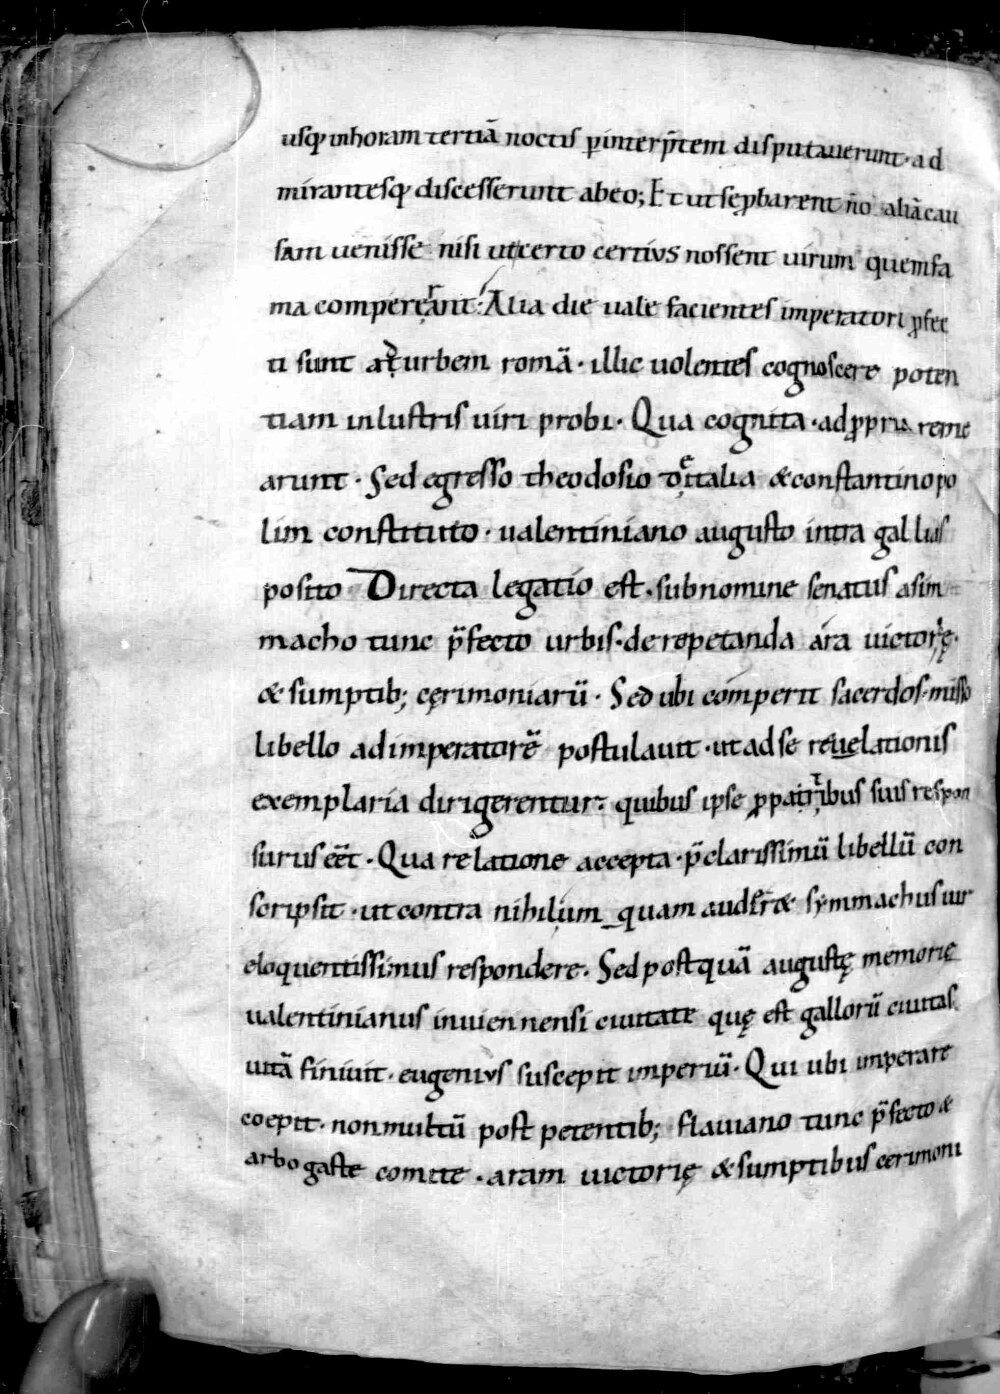 usq; inhoram tertiā noctis p̱interp̄tem disputauerunt · ad
mirantesq; discesserunt abeo; Et ut se ꝓbarent n̄o aliā cau
sam uenisse nisi ut certo certius nossent uirum quem fa
ma compererant: Alia die uale facientes imperatori ꝓfec
ti sunt ad urbem romā · illic uolentes cognoscere poten
tiam inlustris uiri probi · Qua cognita · ad ꝓpria reme
arunt · Sed egresso theodosio ex italia & constantinopo
lim constituto · ualentiniano augusto intra gallias
posito Directa legatio est · sub nomine senatus a sim
macho tunc p̄fecto urbis · de repetanda ara uictorię ·
& sumptib; cęrimoniarū · Sed ubi comperit sacerdos · misso
libello ad imperatorē postulauit · ut ad se reuelationis
exemplaria dirigerentur · quibus ipse ꝓ patribus suis respon
surus eēt · Qua relatione accepta · p̄clarissimū libellū con
scripsit · ut contra nihil umquam auderet symmachus uir
eloquentissimus respondere · Sed postquā augustę memorię
ualentinianus in uiennensi ciuitate quę est gallorū ciuitas
uitā finiuit · eugenius suscepit imperiū · Qui ubi imperare
coepit · non multū post petentib; flauiano tunc p̄fecto &
arbogaste comite · aram uictorię & sumptibus cerimoni